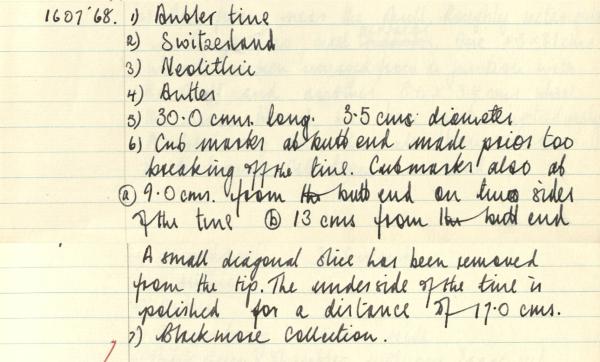 1607'68. 1) Antler tine
2) Switzerland
3) Neolithic
4) Antler
5) 30.0 cms long. 3.5 cms diameter
6) Cub marks at butt end made prior too
breaking off the tine. Cubmarks also at
(a) 9.0 cms. from the butt end on two sides
of the tine (b) 13 cms from the butt end
A small diagonal slice has been removed
from the tip. The underside of the tine is
polished for a distance of 17.0 cms.
7) Blackmore Collection.